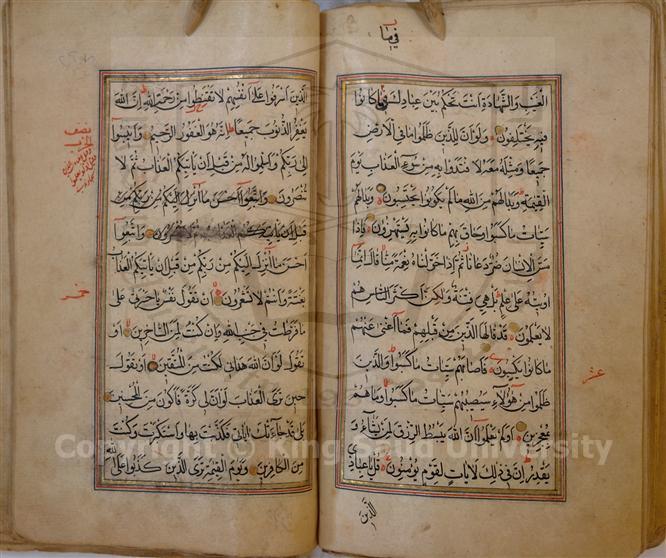 في ما
الغيب والشهادة انت تحكم بين عبادك في ما كانوا
فيه يختلفون ولو ان للذين ظلموا ما في الارض
جميعا ومثله معه لافتدوا به من سوء العذاب يوم
القيمة وبدا لهم من الله ما لم يكونوا يحتسبون وبدا لهم
سيئات ما كسبوا وحاق بهم ما كانوا به يستهزؤن فاذا
مس الانسان ضر دعانا ثم اذا خولناه نعمة منا قال انما
اوتيته على علم بل هي فتنة ولكن اكثر الناس هم
لا يعلمون قد قالها الذين من قبلهم فما اغنى عنهم
ما كانوا يكسبون فاصابهم سيئات ما كسبوا والذين
ظلموا من هؤلاء سيصيبهم سيئات ما كسبوا وما هم
بمعجزين اولم يعلموا ان الله يبسط الرزق لمن يشاء و
يقدر ان في ذلك لايات لقوم يؤمنون قل يا عبادي
الذين
عشر
الذين اسرفوا على انفسهم لا تقنطوا من رحمة الله ان الله
يغفر الذنوب جميعا انه هو الغفور الرحيم وانيبوا
الى ربكم واسلموا له من قبل ان ياتيكم العذاب ثم لا
تنصرون واتبعوا احسن ما انزل اليكم من ربكم من
قبل ان ياتيكم العذاب ثم لا تنصرون واتبعوا
احسن ما انزل اليكم من ربكم من قبل ان ياتيكم العذاب
بغتة وانتم لا تشعرون ان تقول نفس يا حسرتى على
ما فرطت في جنب الله وان كنت لمن الساخرين او
تقول لو ان الله هداني لكنت من المتقين او تقول
حين ترى العذاب لو ان لي كرة فاكون من المحسنين
بلى قد جاءتك اياتي فكذبت بها واستكبرت وكنت
من الكافرين ويوم القيمة ترى الذين كذبوا على الله
نصف
الحزب
خمر
Copyright © King Saud University